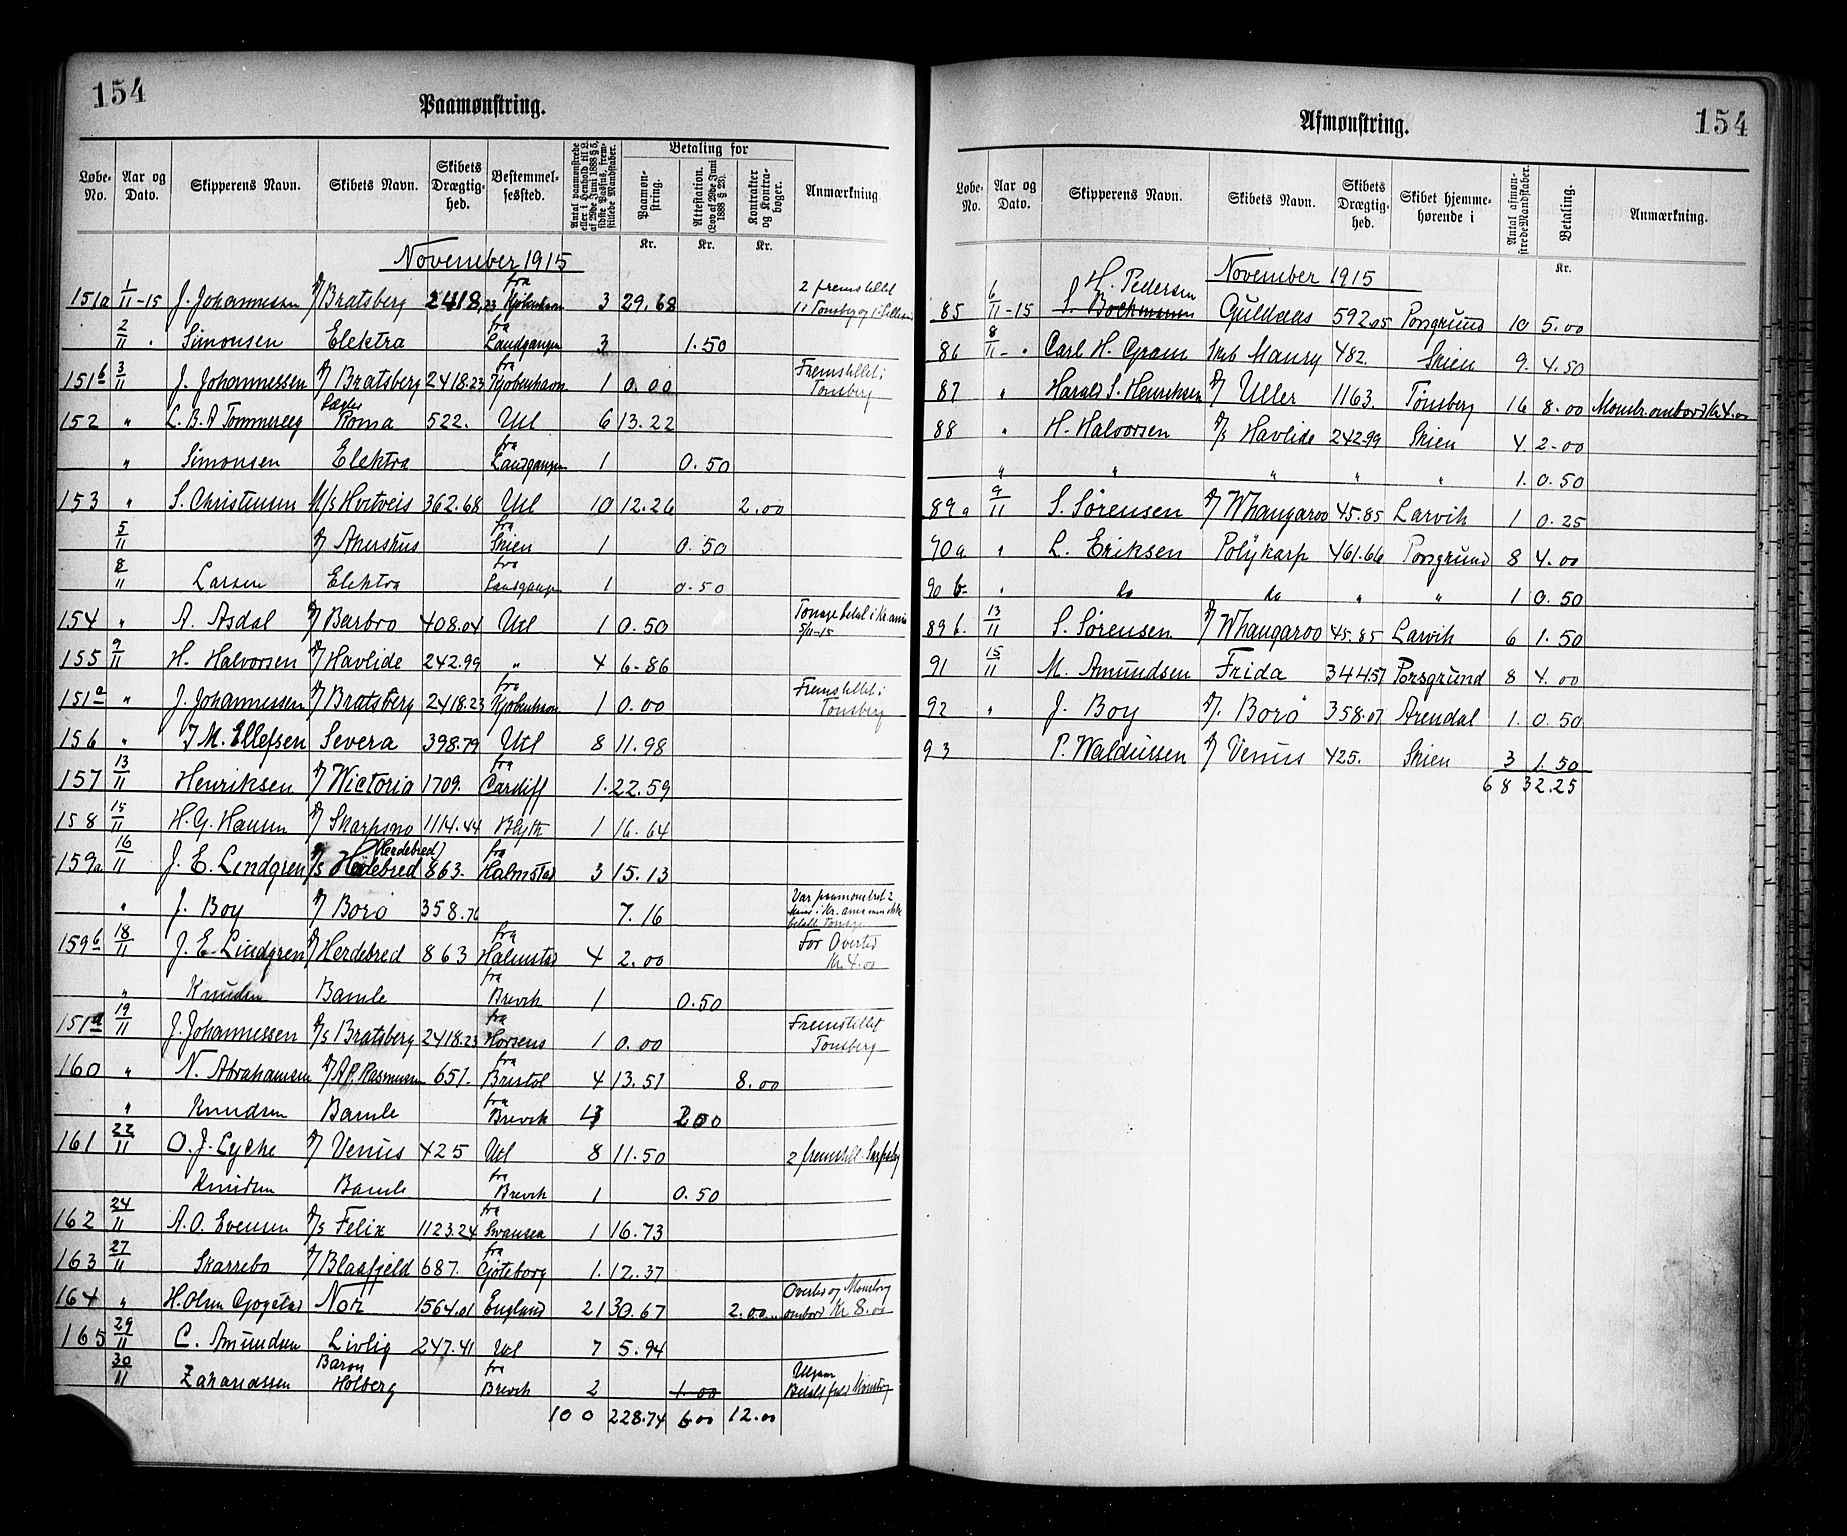 154
Paamønstring.
Løbe-No. Aar og Dato. Skipperens Navn. Skibets Navn. Skibets Drægtighed. Bestemmelsessted. Antal paamønstrede eller i Henhold til L. af 29de Juni 1888 § 5, sidste Passus, fremstillede Mandskaber. Betaling for Paamønstring. Attestation. (Lov af 29de Juni 1888 § 28). Kontrakter og Kontrabøger. Anmærkning
Kr. Kr. Kr.
November 1915
151a 1/11-15 J. Johannessen Bratsberg 2418,23 fra Kjøbenhavn 3 29.68 2 fremstillet
2/11 " Simonsen Elektra fra Landgangen 3 1.50
151b 3/11 J. Johannessen Bratsberg 2418.23 fra Kjøbenhavn 1 0.00 Fremstillet i Tønsberg
152 " L. B. A Tommereeg Roma 522. Utl 6 13.22
" Simonsen Elektra fra Landgangen 1 0.50
153 " S. Christensen M/s Hvitveis 362.68 Utl 10 12.26 2.00
5/11 Akershus fra Skien 1 0.50
8/11 Larsen Elektra fra Landgangen 1 0.50
154 " A. Asdal Barbro 408.04 Utl 1 0.50 Tonage betal i Kr.ania 5/11-15
155 9/11 H. Halvorsen Havlide 242.99 " 4 6-86
151a " J. Johannessen Bratsberg 2418.23 fra Kjøbenhavn 1 0.00 Fremstillet i Tønsberg
156 " J M. Ellefsen Severa 398.79 Utl 8 11.98
157 13/11 Henriksen Wictoria 1709. fra Cardiff 1. 22.59
158 15/11 H. G. Hansen Skarpsno 1114.44 Blyth 1 16.64
159a 16/11 J. E. Lindgren (Herdebred) 863. fra Halmstad 3 15.13
" J. Boy Borø 358.76 7.16 Var paamønstret 2 Mand i Kr. ania men ikke betalt Tonage
159b 18/11 J. E. Lindgren Herdebred 863 fra Halmstad 4 2.00 For Overtid Kr 4.00
" Knudsen Bamle fra Brevik 1 0.50
151 19/11 J. Johannessen D/s Bratsberg 2418.23 fra Horsens 1 0.00 Fremstillet Tønsberg
160 " N. Abrahamsen A P. Rasmussen 651. fra Bristol 4 13.51 8.00
" Knudsen Bamle fra Brevik 2.00
161 22/11 O. J. Lycke Venus 425 Utl 8 11.50 2 fremstill. Sarpsbg
Knudsen Bamle fra Brevik 1 0.50
162 24/11 A. O. Evensen D/s Felix 1123.24 fra Swansea 1 16.73
163 27/11 Skarrebo Blaafjeld 687. fra Gjøteborg 1. 12.37
164 " H. Olsen Gogstad Nor 1564.01 England 21 30.67 2.00 Overtid og Mønstring ombord Kr 8.00
165 29/11 C. Amundsen Livlig 247.41 Utl 7 5.94
30/11 Zakariassen Baron Holberg fra Brevik 2 1.00
100 228.74 6.00 12.00
154
Afmønstring.
Løbe-No. Aar og Dato. Skipperens Navn. Skibets Navn. Skibets Drægtighed. Skibet hjemmehørende i Antal afmønstrede Mandskaber. Betaling. Anmærkning.
Kr.
November 1915
85 6/11-15 H. Pedersen S. Bockmann Guldaas 592.05 Porsgrund 10 5.00
86 8/11- " Carl H. Gram Skb Maury 482. Skien 9. 4.50
87 " Harald S. Henriksen Uller 1163. Tønsberg 16 8.00 Mønstr. ombord Kr 4.00
88 " H. Halvorsen D/s Havlide 242.99 Skien 4. 2-00
" " " " " 1. 0.50
89a 9/11 S. Sørensen Whangaroo 45.85 Larvik 1 0.25
90a " L. Eriksen Polykarp 461.66 Porsgrund 8 4.00
90 b- " do do " " 1 0.50
89b. 13/11 S. Sørensen Whangaroo 45.85 Larvik 6 1.50
91 15/11 M. Amundsen Frida 344.57 Porsgrund 8 4.00
92 " J. Boy Borø 358.07 Arendal 1. 0.50
93 P. Waldussen Venus 425. Skien 3 1.50
68 32.25